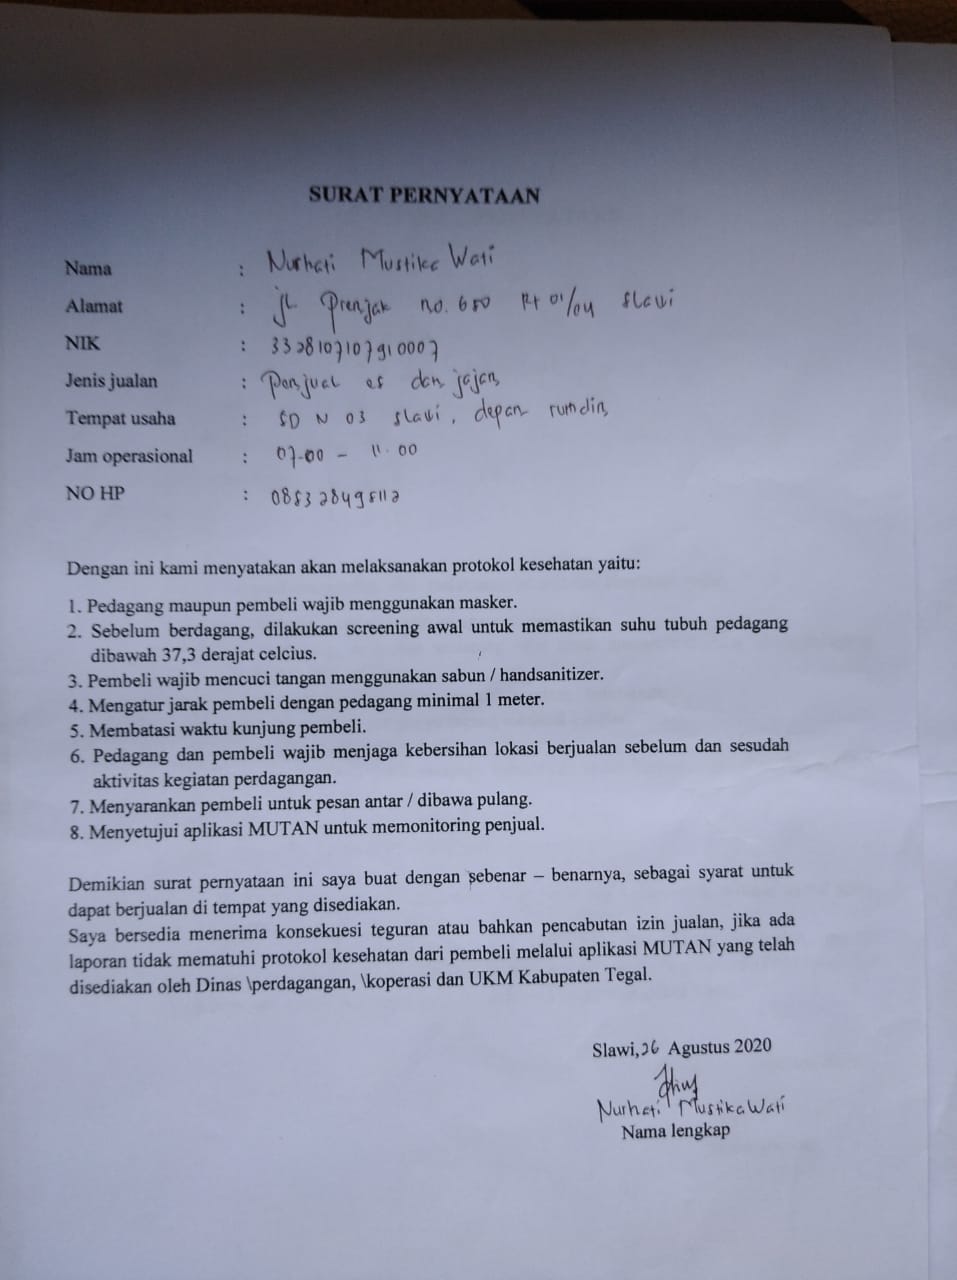 SURAT PERNYATAAN
Nama : Nurhati Mustika Wati
Alamat : jl Prenjak no. 680 Rt 01/04 Slawi
NIK : 3328107107910007
Jenis jualan : Penjual es dan jajan
Tempat usaha : SD N 03 Slawi, depan rumdin
Jam operasional : 07.00 - 11.00
NO HP : 085328498112
Dengan ini kami menyatakan akan melaksanakan protokol kesehatan yaitu:
1. Pedagang maupun pembeli wajib menggunakan masker.
2. Sebelum berdagang, dilakukan screening awal untuk memastikan suhu tubuh pedagang
dibawah 37,3 derajat celcius.
3. Pembeli wajib mencuci tangan menggunakan sabun / handsanitizer.
4. Mengatur jarak pembeli dengan pedagang minimal 1 meter.
5. Membatasi waktu kunjung pembeli.
6. Pedagang dan pembeli wajib menjaga kebersihan lokasi berjualan sebelum dan sesudah
aktivitas kegiatan perdagangan.
7. Menyarankan pembeli untuk pesan antar / dibawa pulang.
8. Menyetujui aplikasi MUTAN untuk memonitoring penjual.
Demikian surat pernyataan ini saya buat dengan sebenar – benarnya, sebagai syarat untuk
dapat berjualan di tempat yang disediakan.
Saya bersedia menerima konsekuesi teguran atau bahkan pencabutan izin jualan, jika ada
laporan tidak mematuhi protokol kesehatan dari pembeli melalui aplikasi MUTAN yang telah
disediakan oleh Dinas \perdagangan, \koperasi dan UKM Kabupaten Tegal.
Slawi, 26 Agustus 2020
Nurhati Mustika Wati
Nama lengkap